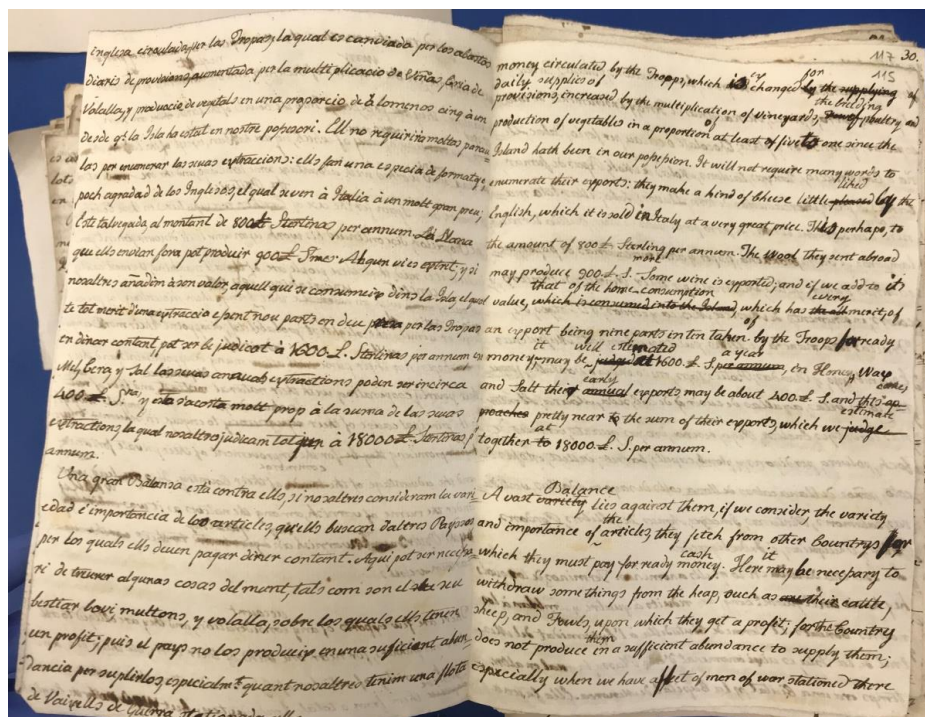 inglesa circulada per las Tropas, la qual es cambiada per los abastos
diaris de provisions, aumentada per la multiplicacio de Viñas, Cria de
Volalla, y produccio de vegetals en una proporcio de à lo menos cinq à un
desde qe. la Isla ha estat en nostre possessori. Ell no requirirà moltas parau-
las per enumerar las suas extraccions: ells fan una especia de formatge,
poch agradad de los Inglesos, el qual se ven à Italia à un molt gran preu;
Este talvegada, al montant de 800£ Sterlinas per annum. La Llana
que ells envian fora pot produir 900.£. Smes. Algun vi es extret; y si
nosaltres añadim à son valor aquell qui se consumeix dins la Isla, el qual
te tot merit d'una extraccio essent nou parts en deu presa per las Tropas
en diner contant, pot ser be judicat à 1600.£. Sterlinas per annum en
Mel, Cera, y Sal las suas annuals extractions poden ser circa
400.£. Sras, y esta sacosta molt prop à la suma de las suas
extractions, la qual nosaltros judicam tot à 18000£ Sterlinas p.
annum.
Una gran Balansa està contra ells, si nosaltres consideram la vari-
edad è importancia de los articles, que ells buscan d'alteres Paysos
per los quals ells deuen pagar diner contant. Aqui pot ser necessa-
ri de traurer algunas cosas del munt, tals com son el seu
bestiar bovi, multons, y volalla, sobre los quals ells tenen
un profit; puis el pays no los produeix en una suficient abun-
dancia per suplirlos, especialmt. quant nosaltres tenim una flota
de Vaixells de Guerra
117 30.
115
money circulated by the Tropps, which is changed by the supplying of
for
daily supplies of
the building
provisions, increased by the multiplication of vineyards, poultry and
production of vegetables in a proportion of at least of five to one since the
Island hath been in our possession. It will not require many words to
liked
enumerate their exports: they make a kind of cheese little pleased by the
English, which it is sold in Italy at a very great price. This perhaps, to
the amount of 800£ Sterling per annum. The Wool they sent abroad
more
may produce 900.£. S. Some wine is exported; and if we add to its
that of the home consumption every
value, which is consumed into the Island, which has the all merit, of
of
an export being nine parts in ten taken by the Troops for ready
it will estimated a year
money, may be judged at 1600.£. S. per annum, en Honey, Wax
early comes
and Salt they annual exports may be about 400.£. S. and this ap-
estimate
proaches pretty near to the sum of their exports, which we judge
at
together to 18000.£. S. per annum.
Balance
A vast variety lies against them, if we consider, the variety
the
and importance of articles, they fetch from other Countrys for
cash it
which they must pay for ready money. Here may be necessary to
withdraw some things from the heap, such as are their cattle,
sheep, and Fowls, upon which they get a profit; for the Country
them
does not produce in a sufficient abundance to supply them;
especially when we have a fleet of men of war stationed there